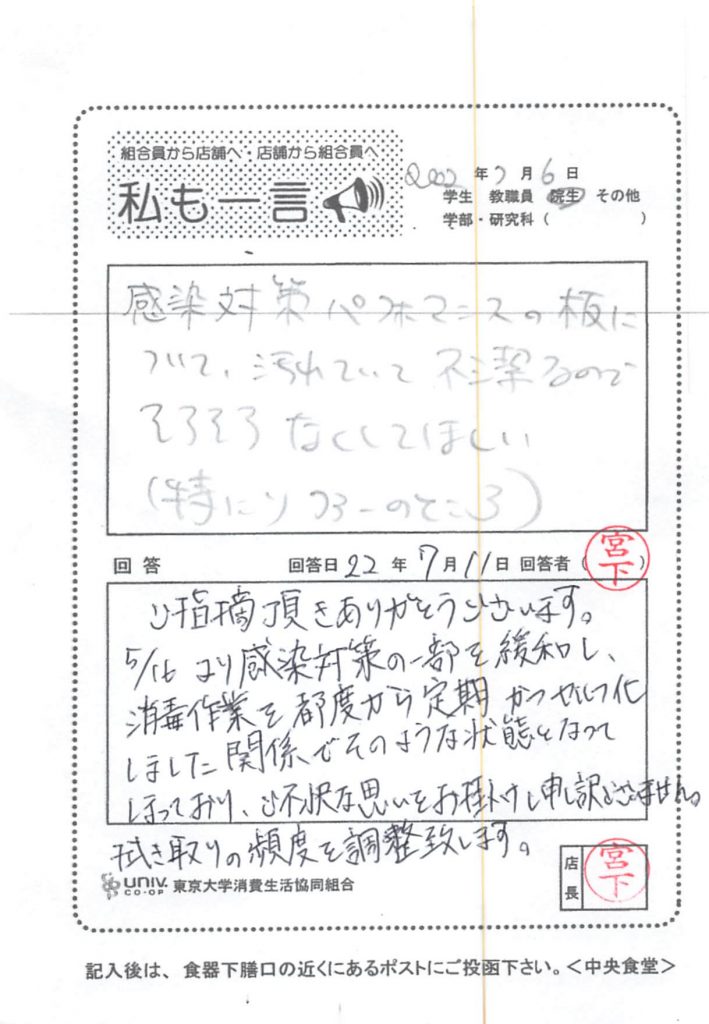 組合員から店舗へ・店舗から組合員へ
私も一言
2022年7月6日
学生 教職員 院生 その他
学部・研究科( )
感染対策パフォーマンスの板に
ついて、汚れていて不潔なので
そろそろなくしてほしい
(特にソファーのところ)
回答 回答日22年7月11日 回答者(宮下)
ご指摘頂きありがとうございます。
5/16より感染対策の一部を緩和し、
消毒作業を都度から定期かつセルフ化
しました関係でそのような状態となって
しまっており、ご不快な思いをお掛けし申し訳ございません。
拭き取りの頻度を調整致します。
UNIV. CO-OP 東京大学消費生活協同組合
店長 宮下
記入後は、食器下膳口の近くにあるポストにご投函下さい。<中央食堂>